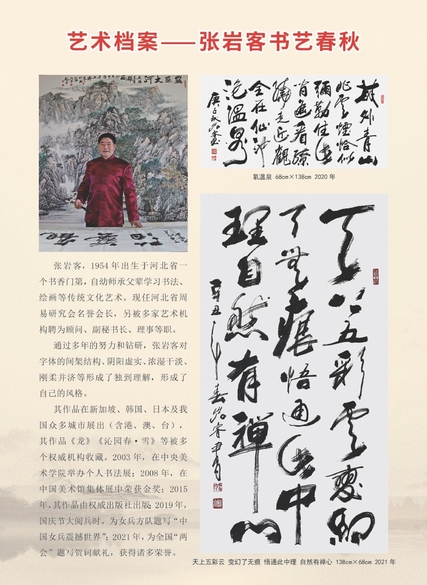 艺术档案——张岩客书艺春秋
氡温泉 68cm×138cm 2020 年
张岩客，1954 年出生于河北省一
个书香门第，自幼师承父辈学习书法、
绘画等传统文化艺术。现任河北省周
易研究会名誉会长，另被多家艺术机
构聘为顾问、副秘书长、理事等职。
通过多年的努力和钻研，张岩客对
字体的间架结构、阴阳虚实、浓湿干淡、
刚柔并济等形成了独到理解，形成了
自己的风格。
其作品在新加坡、韩国、日本及我
国众多城市展出（含港、澳、台），
其作品《龙》《沁园春·雪》等被多
个权威机构收藏。2003 年，在中央美
术学院举办个人书法展；2008 年，在
中国美术馆集体展中荣获金奖；2015
年，其作品由权威出版社出版；2019 年，
国庆节大阅兵时，为女兵方队题写“中
国女兵震撼世界”；2021 年，为全国“两
会”题写贺词献礼，获得诸多荣誉。
天上五彩雲變幻
了無痕悟通此中
理自然有禪心
天上五彩云 变幻了无痕 悟通此中理 自然有禅心 138cm×68cm 2021 年